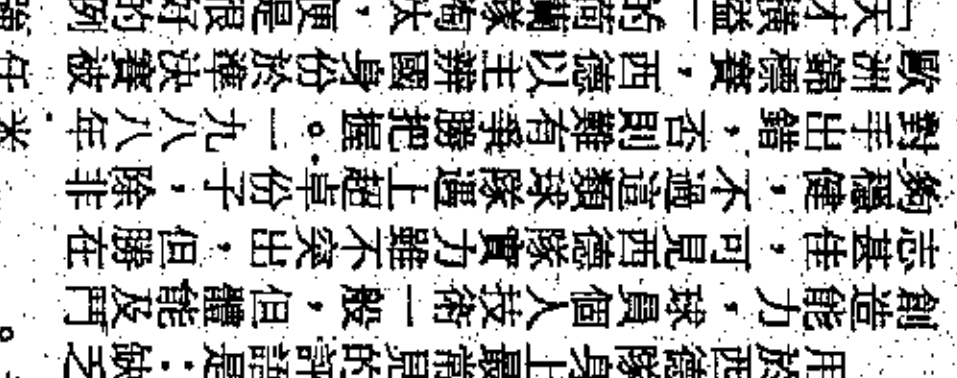 用於西德隊身上最常見的評語是：缺乏
創造能力，球員個人技術一般，但體能及鬥
志甚佳，可見西德隊實力雖不突出，但勝在
夠穩健，不過這類球隊遇上超卓份子，除非
對手出錯，否則難有爭勝把握。一九八八年
歐洲錦標賽，西德以主辦國身份於準決賽被
「天才橫溢」的荷蘭隊淘汰，便是很好的例